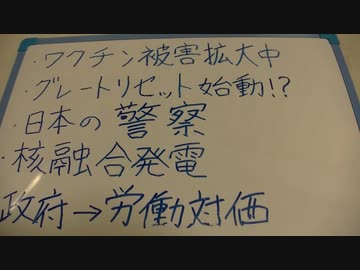 ・ワクチン被害拡大中
・グレートリセット始動!?
・日本の警察
・核融合発電
政府→労働対価